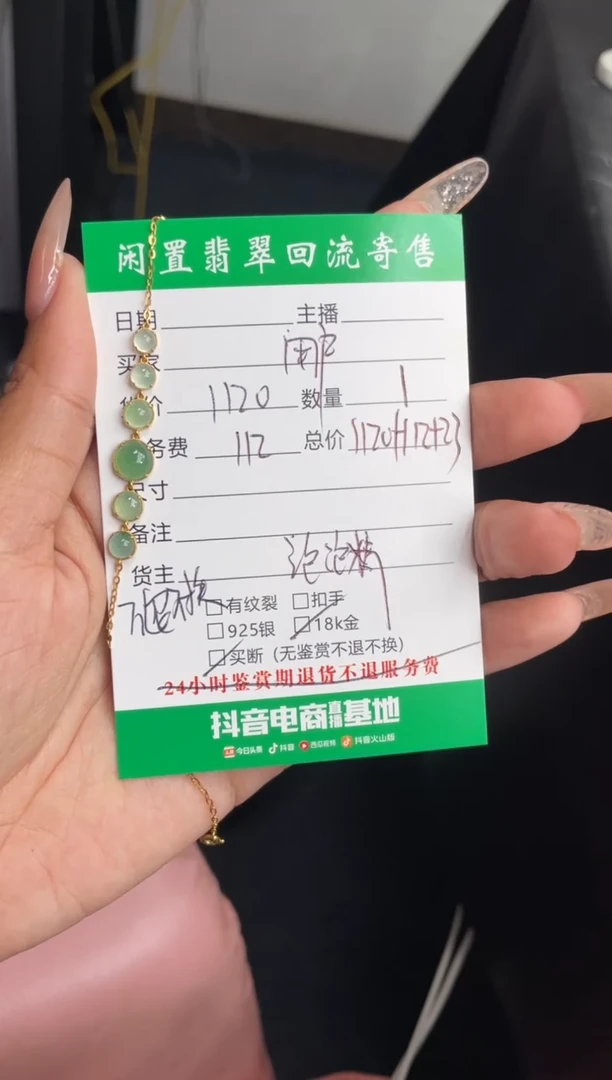 闲置翡翠回流寄售
日期 主播
买家 用户
货价 1120 数量 1
务费 112 总价 1120+112+23
尺寸
备注
货主
有纹裂 扣手
925银 18k金
买断(无鉴赏不退不换)
24小时鉴赏期退货不退服务费
抖音电商直播基地
今日头条 抖音 西瓜视频 抖音火山版